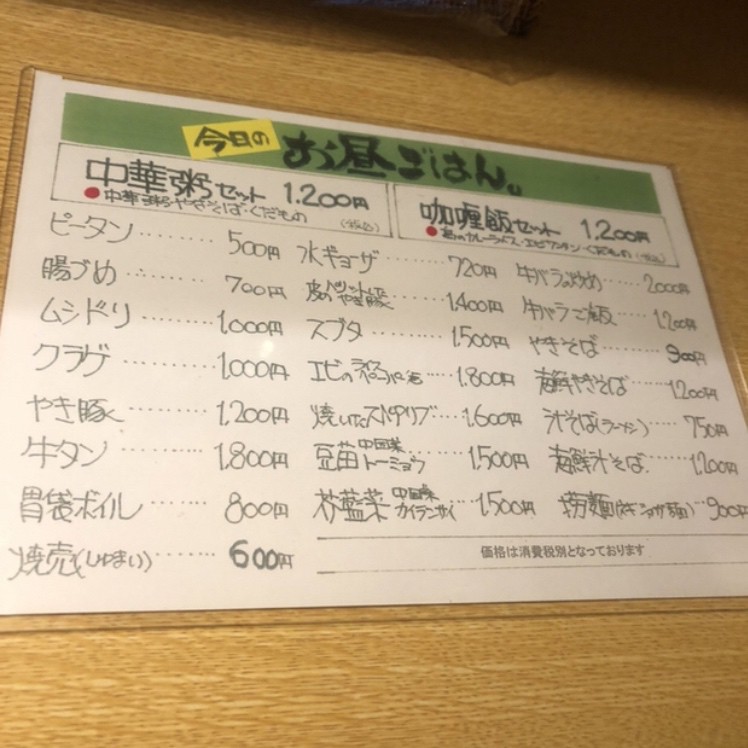 今日の お昼ごはん。
中華粥セット 1.200円
●中華粥・やきそば・くだもの (税込)
咖喱飯セット 1.200円
●カレーライス・エビワンタン・くだもの (税込)
ピータン 500円
腸づめ 700円
ムシドリ 1.000円
クラゲ 1.000円
やき豚 1.200円
牛タン 1.800円
胃袋ボイル 800円
焼売(しゅまい) 600円
水ギョーザ 720円
1.400円
スブタ 1.500円
エビの 1.800円
焼いた 1.600円
豆苗 中国菜 トーミョウ 1.500円
芥藍菜 中国菜 カイランサイ 1.500円
牛バラの炒め 2.000円
牛バラご飯 1.200円
やきそば 900円
海鮮やきそば 1.200円
汁そば(ラーメン) 750円
海鮮汁そば 1.200円
撈麺 900円
価格は消費税別となっております